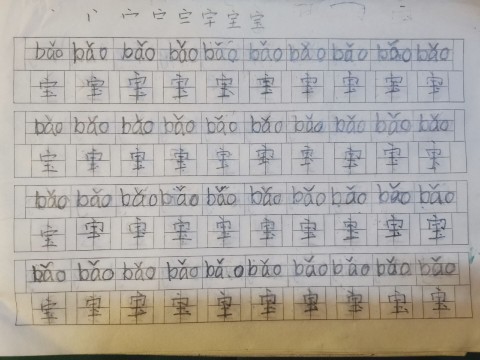 bǎo bǎo bǎo bǎo bǎo bǎo bǎo bǎo bǎo bǎo
宝 宝 宝 宝 宝 宝 宝 宝 宝 宝
bǎo bǎo bǎo bǎo bǎo bǎo bǎo bǎo bǎo bǎo
宝 宝 宝 宝 宝 宝 宝 宝 宝 宝
bǎo bǎo bǎo bǎo bǎo bǎo bǎo bǎo bǎo bǎo
宝 宝 宝 宝 宝 宝 宝 宝 宝 宝
bǎo bǎo bǎo bǎo bǎo bǎo bǎo bǎo bǎo bǎo
宝 宝 宝 宝 宝 宝 宝 宝 宝 宝